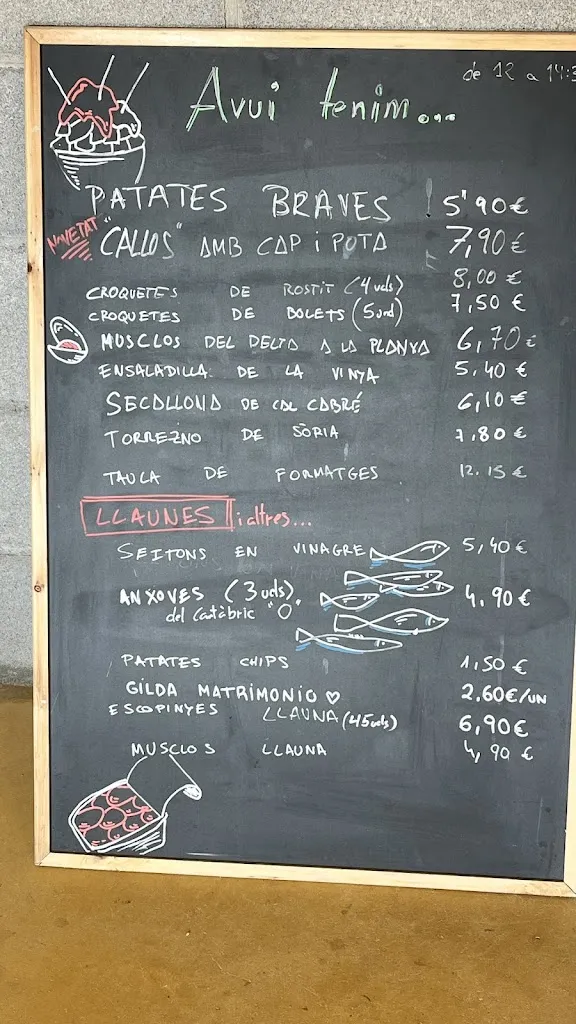 de 12 a 14:3
Avui tenim...
PATATES BRAVES 5'90€
NOVETAT "CALLOS" AMB CAP i POTA 7,90€
CROQUETES DE ROSTIT (4 uds) 8,00 €
CROQUETES DE BOLETS (5 und) 7,50 €
MUSCLOS DEL DELTA A LA PLANXA 6,70€
ENSALADILLA DE LA VINYA 5,40 €
SECALLONA DE CAL CABRÉ 6,10€
TORREZNO DE SÒRIA 7.80 €
TAULA DE FORMATGES 12.15 €
LLAUNES i altres...
SEITONS EN VINAGRE 5,40€
ANXOVES (3 uds) 4,90€
del Cantàbric "O"
PATATES CHIPS 1,50 €
GILDA MATRIMONIO ♡ 2.60€/UN
ESCOPINYES LLAUNA (45 uds) 6,90€
MUSCLOS LLAUNA 4,90 €